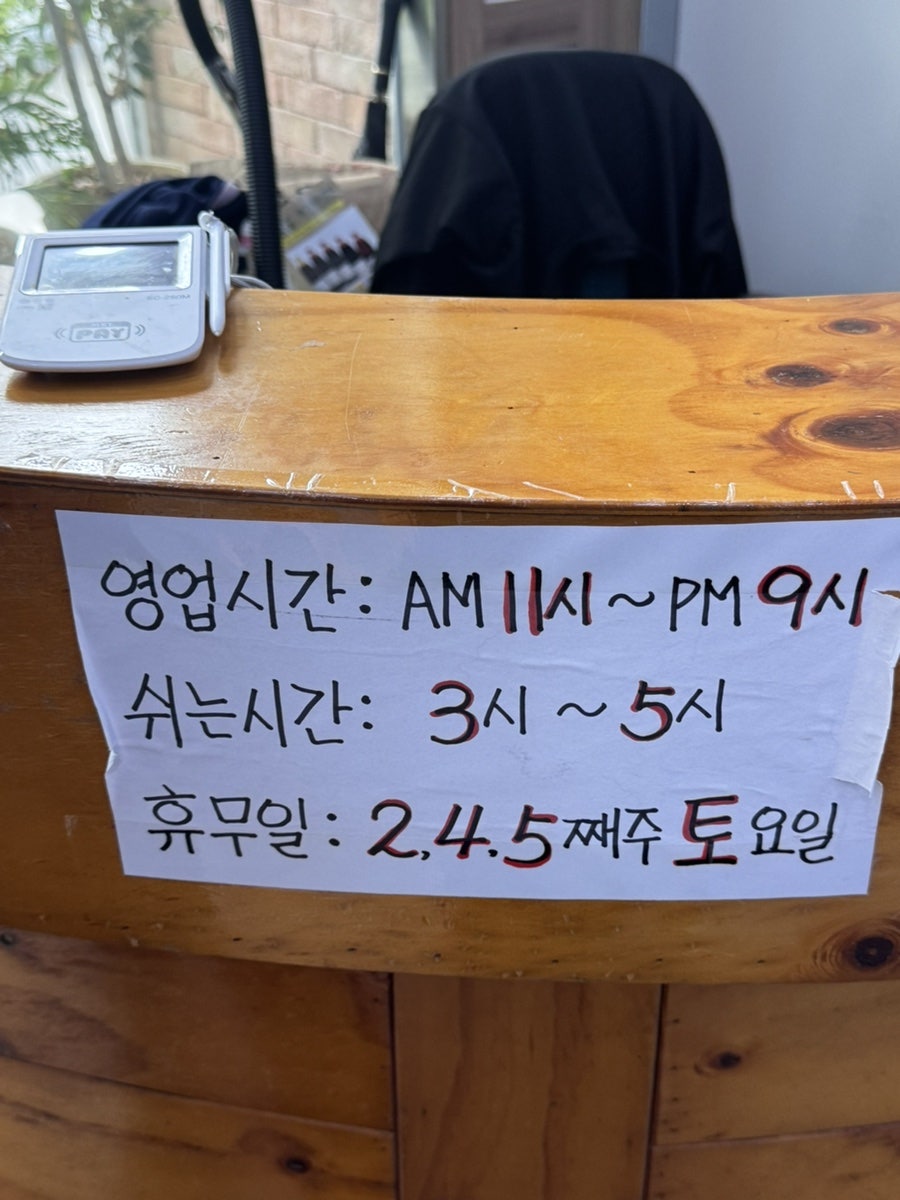 PAY
영업시간: AM 11시 ~ PM 9시
쉬는시간: 3시 ~ 5시
휴무일: 2,4.5째주 토요일